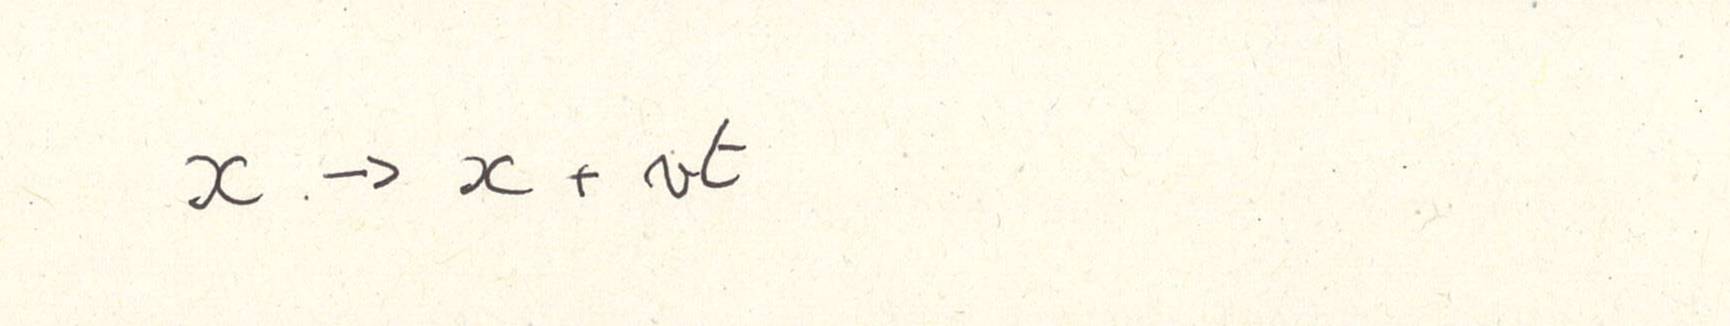 x → x + vt